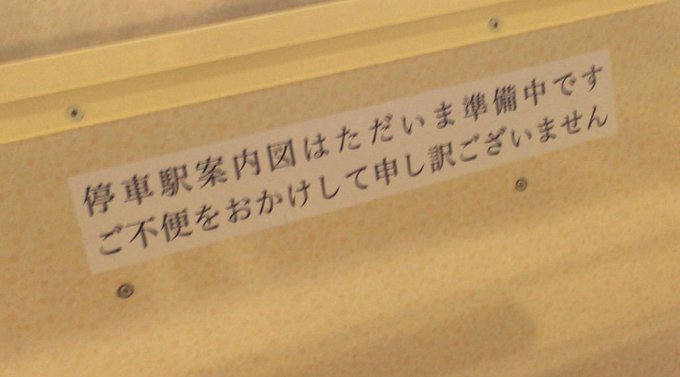 停車駅案内図はただいま準備中です
ご不便をおかけして申し訳ございません